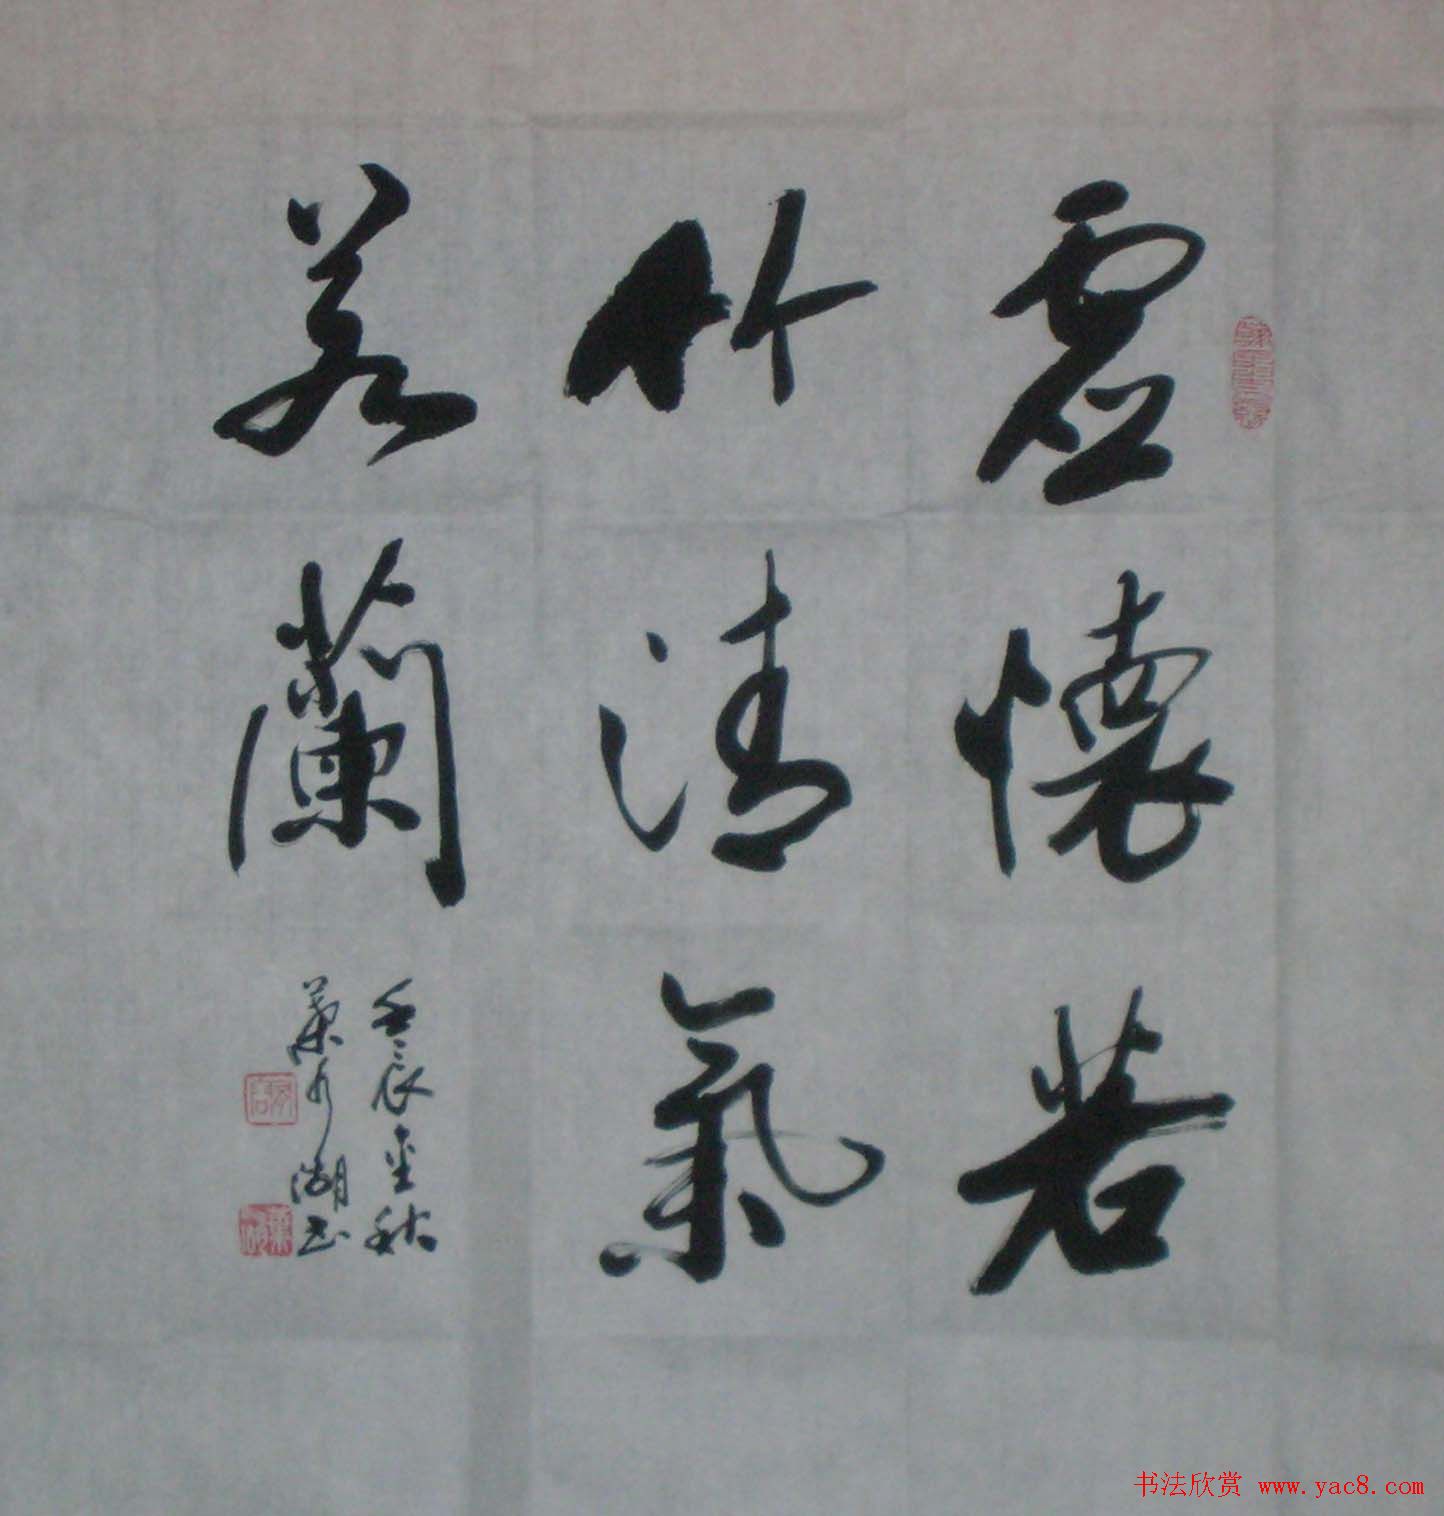 虚懷若
竹清氣
若蘭
壬辰金秋
葉水湖书
书法欣赏 www.yac8.com